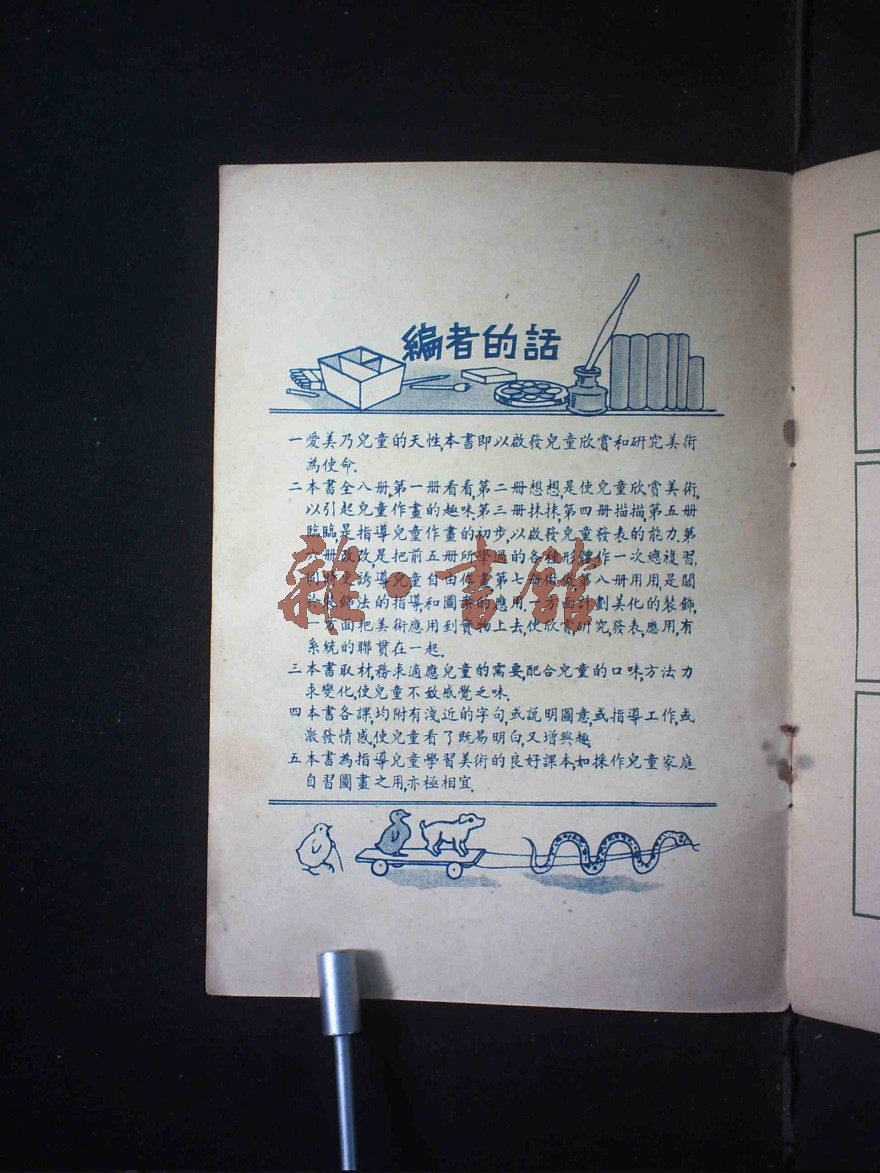 編者的話
一愛美乃兒童的天性,本書即以啟發兒童欣賞和研究美術
為使命.
二本書全八册,第一册看看,第二册想想,是使兒童欣賞美術,
以引起兒童作畫的趣味.第三册抹抹,第四册描描,第五册
臨臨,是指導兒童作畫的初步,以啟發兒童發表的能力.第
六册改改,是把前五册所學過的各種形體作一次總複習,
同時誘導兒童自由作畫.第七册做做,第八册用用,是關
於裝飾法的指導和圖案的應用,一方面計劃美化的裝飾,
一方面把美術應用到實物上去,使欣賞,研究,發表,應用,有
系統的聯貫在一起.
三本書取材,務求適應兒童的需要,配合兒童的口味,方法力
求變化,使兒童不致感覺乏味.
四本書各課,均附有淺近的字句,或説明圖意,或指導工作,或
激發情感,使兒童看了既易明白,又增興趣.
五本書為指導兒童學習美術的良好課本,如採作兒童家庭
自習圖畫之用,亦極相宜.
雜·書館